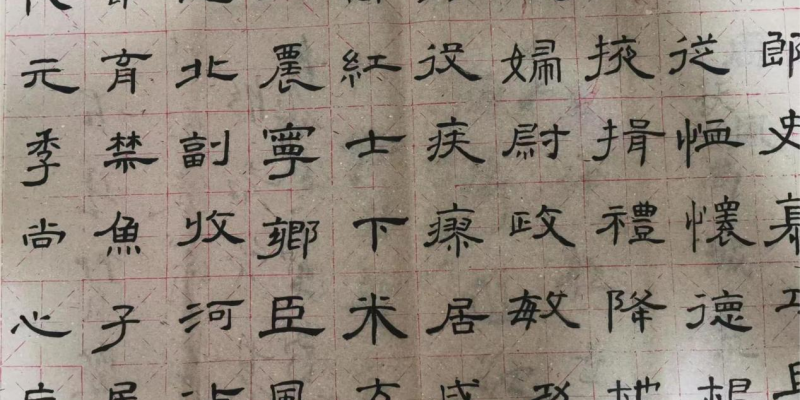 郎史慕工
從恤懷德相
掖揖禮降地
婦尉政敏
役疾瘵居
紅士下米
農寧鄉臣
北副收河
育禁魚子
元季尚心